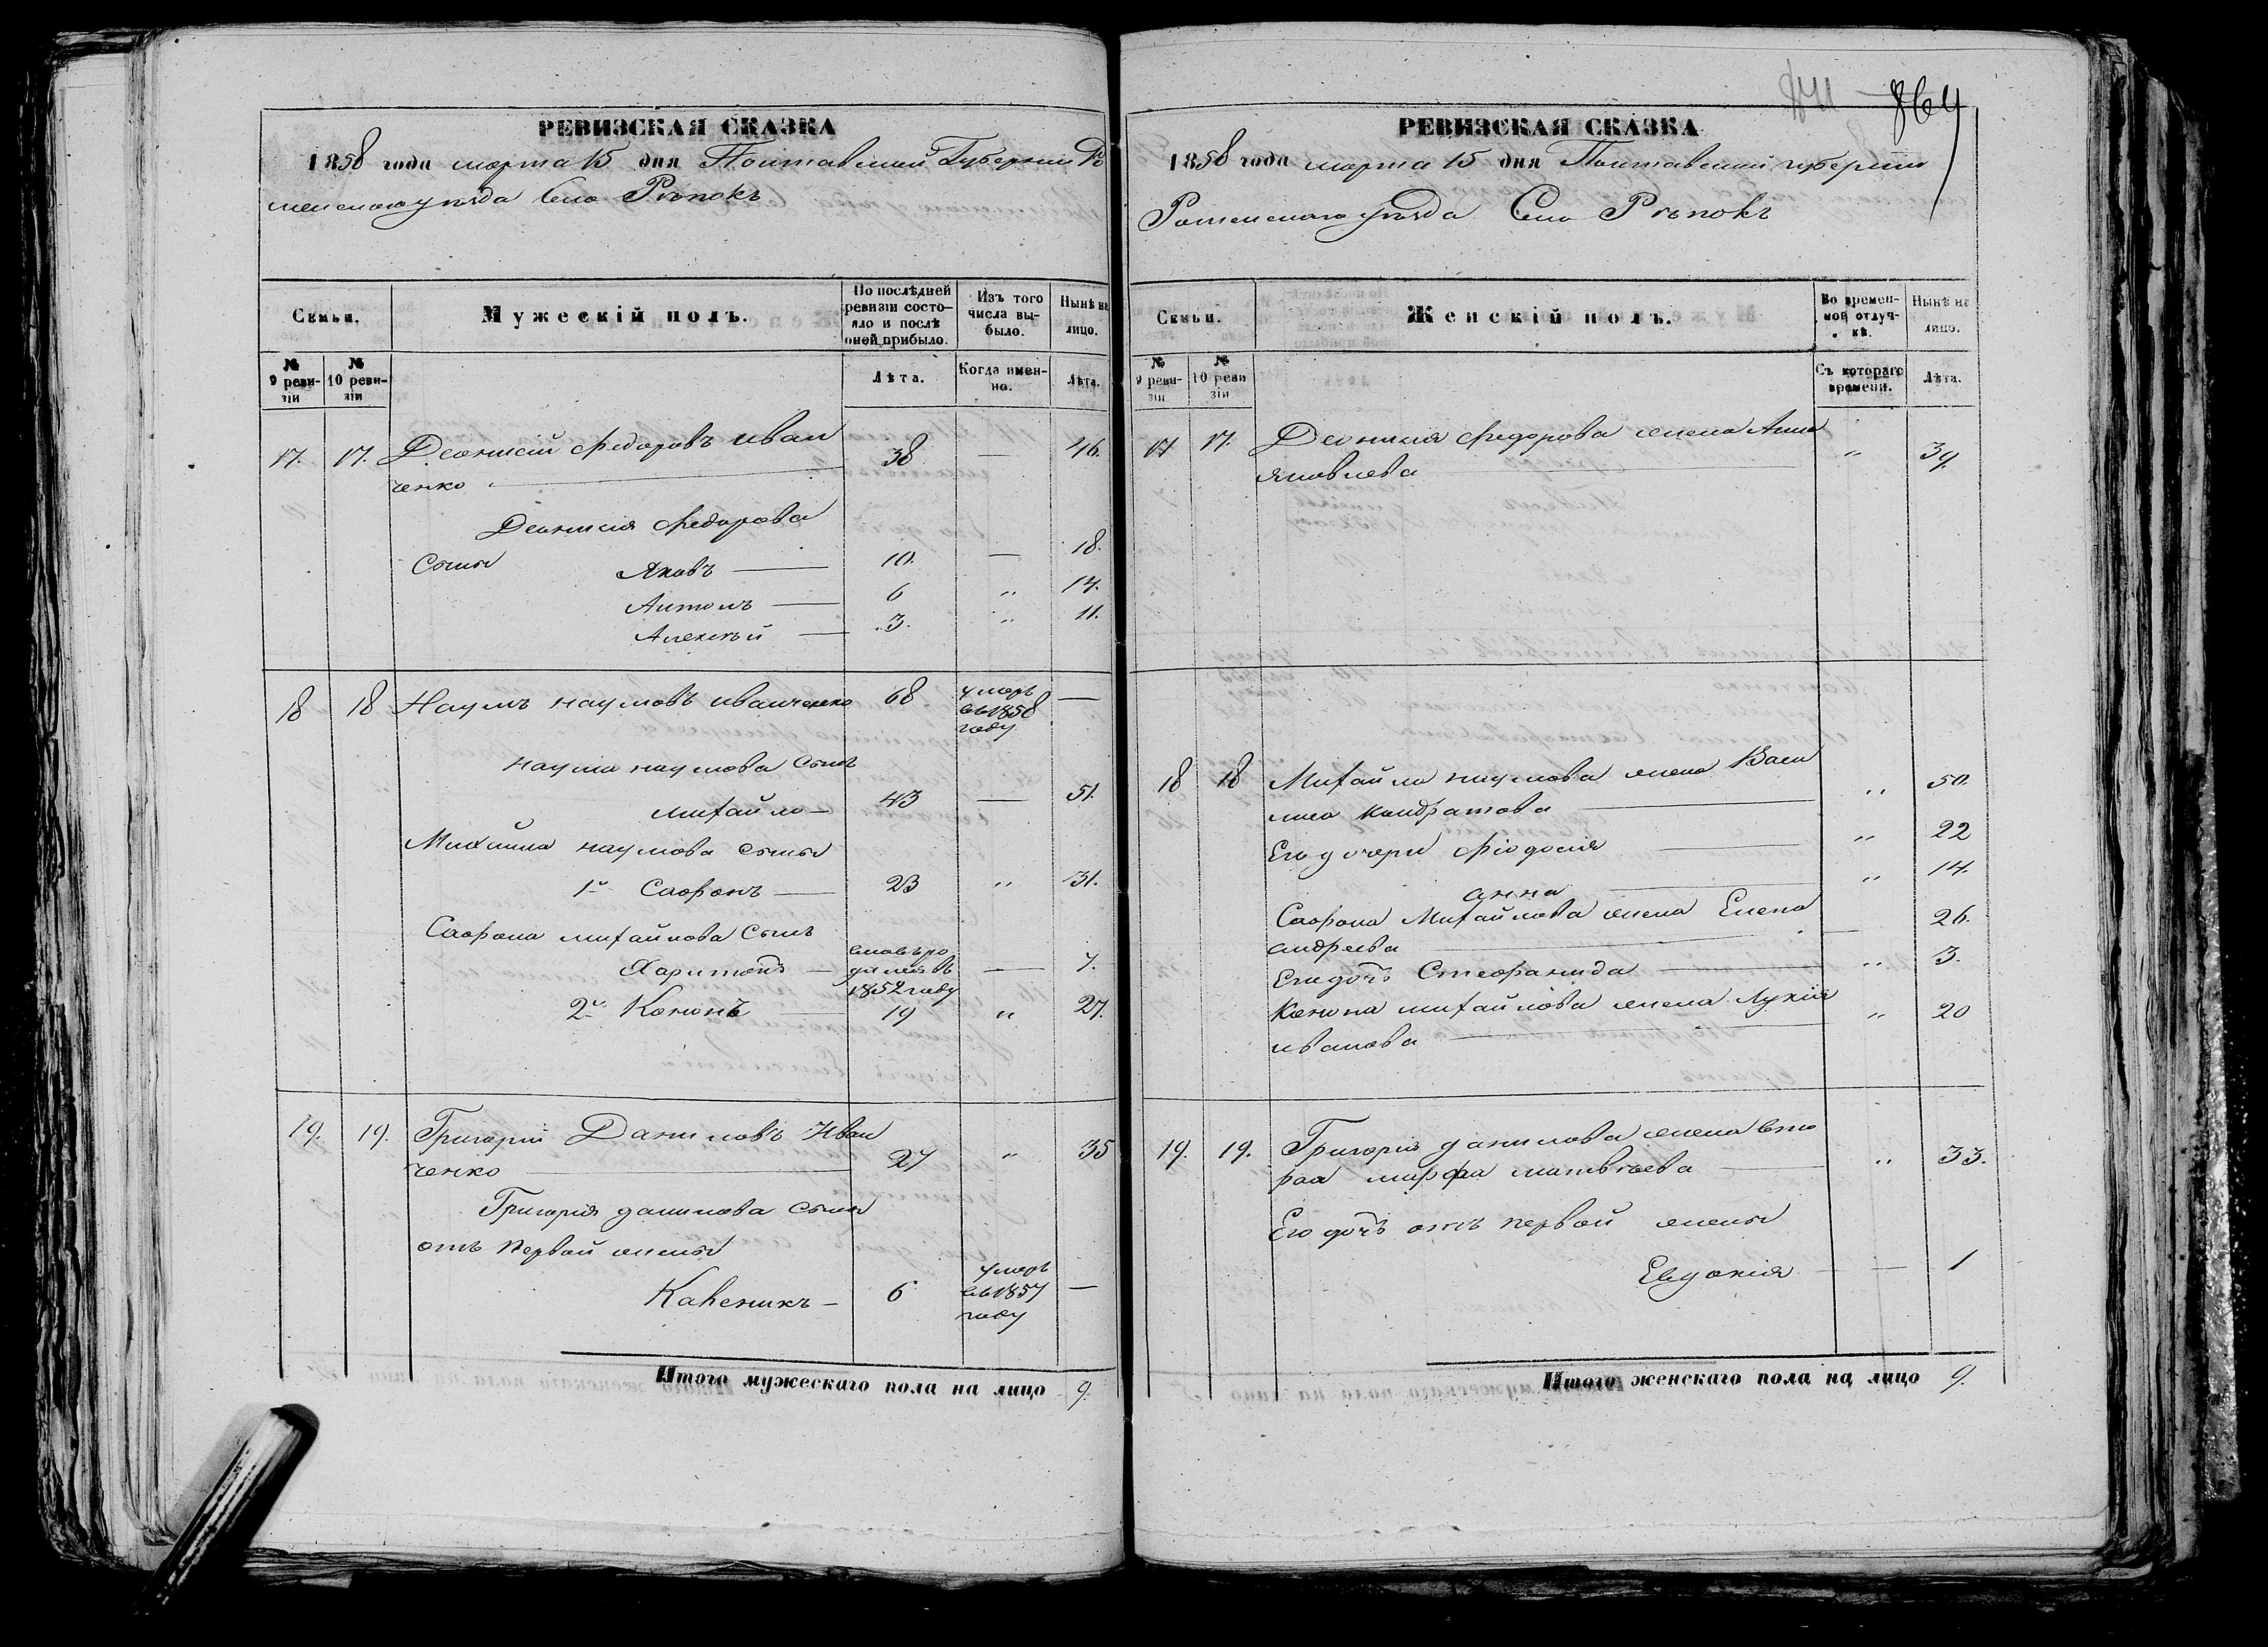 РЕВИЗСКАЯ СКАЗКА
1858 года марта 15 дня Полтавской Губернии Ро
менского уѣзда Село Рѣпокъ
Семьи.
Мужескій полъ.
По послѣдней ревизіи состояло и послѣ оной прибыло.
Изъ того числа выбыло.
Нынѣ на лицо.
№ 9 ревизіи
№ 10 ревизіи
Лѣта.
Когда именно.
Лѣта.
17. 17. Деонисій Федоровъ Иван 38 — 46.
ченко
Деонисія Федорова
Сыны Яковъ 10. — 18.
Антонъ 6 „ 14.
Алексѣй 3. „ 11.
18 18 Наумъ Наумовъ Иванченко 68 умеръ въ 1858 году —
Наума Наумова Сынъ
Михайло 43 — 51.
Михайла Наумова Сыны
1й Саофонъ 23 „ 31.
Саофона Михайлова Сынъ
Харитонъ вновь родился въ 1852 году — 7.
2й Кононъ 19 „ 27.
19. 19. Григорій Даниловъ Иван 27 „ 35
ченко
Григорія Данилова Сыны
отъ первой жены
Каленикъ 6 умеръ въ 1857 году —
Итого мужескаго пола на лицо 9.
864
РЕВИЗСКАЯ СКАЗКА
1858 года марта 15 дня Полтавской губернии
Роменского уѣзда Село Рѣпокъ
Семьи.
Женскій полъ.
Во временной отлучкѣ.
Нынѣ на лицо.
№ 9 ревизіи
№ 10 ревизіи
Съ котораго времени.
Лѣта.
17 17. Деонисія Федорова жена Анна „ 39.
Яковлева
18 18 Михайла Наумова жена Васи „ 50.
лиса Кондратова
Его дочери Фіодосія „ 22
Анна „ 14.
Саофона Михайлова жена Елена 26.
Андреева
Его дочь Стефанида „ 3.
Конона Михайлова жена Лукія „ 20
Иванова
19. 19. Григорія Данилова жена вто „ 33.
рая Марфа Матвѣева
Его дочь отъ первой жены
Евдокія — 1
Итого женскаго пола на лицо 9.